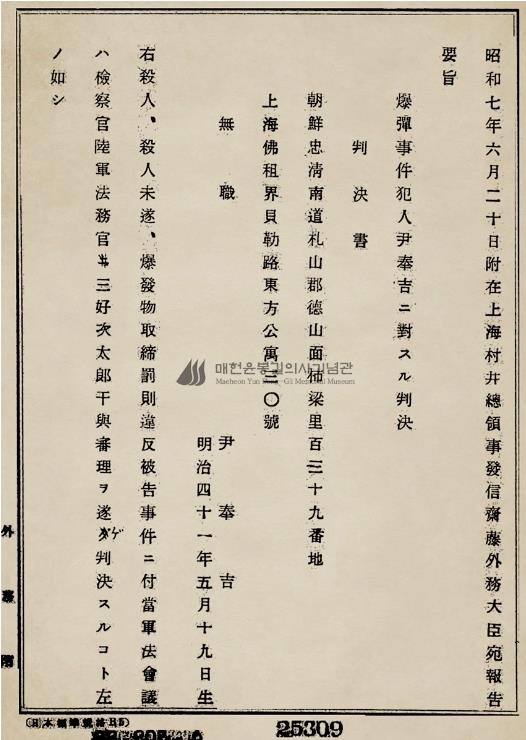 昭和七年六月二十日附在上海村井總領事發信齋藤外務大臣宛報告
要旨
爆彈事件犯人尹奉吉ニ對スル判決
判決書
朝鮮忠淸南道札山郡德山面柿梁里百三十九番地
上海佛租界貝勒路東方公寓三〇號
無職
尹奉吉
明治四十一年五月十九日生
右殺人、殺人未遂、爆發物取締罰則違反被告事件ニ付當軍法會議
ハ檢察官陸軍法務官三好次太郎干與審理ヲ遂ゲ判決スルコト左
ノ如シ
매헌윤봉길의사기념관
Maeheon Yun Bong-Gil Memorial Museum
外
25309